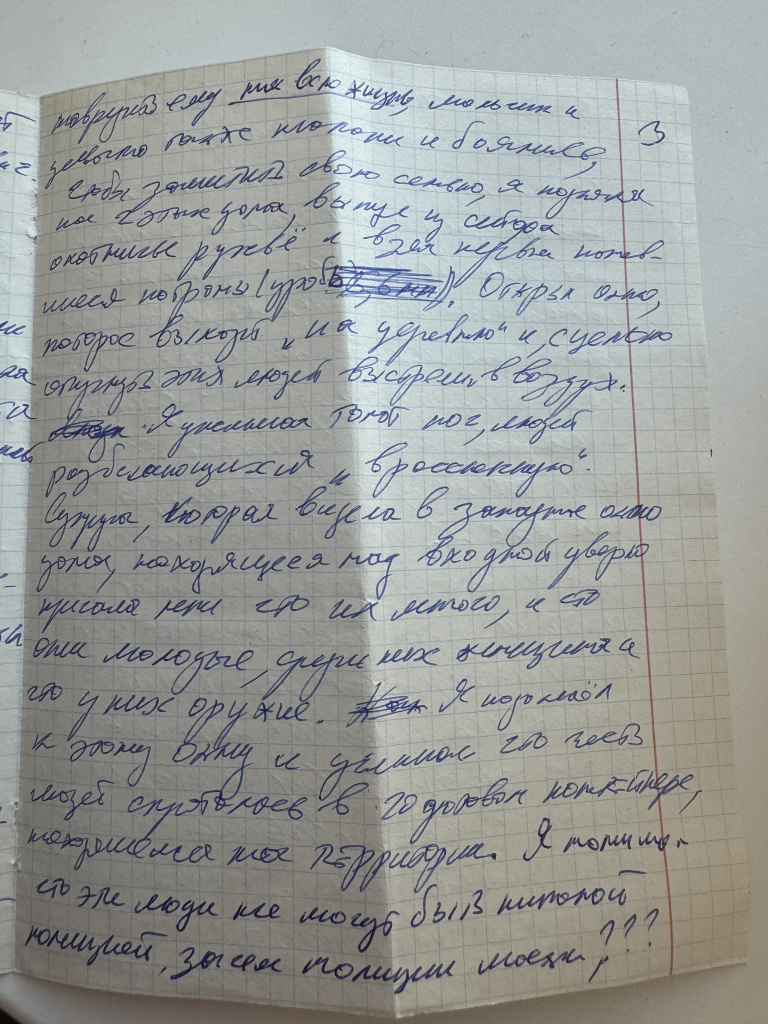 ему на всю жизнь, мальчик и
также плакали и боялись,
3
Чтобы защитить свою семью, я поднялся
на 2 этаж дома, вынул из сейфа
охотничье ружьё и взял первые попав-
шиеся патроны (дробь). Открыл окно,
которое выходит „на деревню" и, с целью
отпугнуть этих людей выстрелил в воздух.
Я услышал топот ног, людей
разбегающихся „в рассыпную".
Супруга, которая видела в западное окно
дома, находящееся над входной дверью
кричала мне что их много, и что
они молодые, среди них женщина и
что у них оружие. Я подошёл
к этому окну и услышал что часть
людей спряталась в 20 футовом контейнере,
находящемся на территории. Я понимал
что эти люди не могут быть никакой
полицией, зачем полиции маски???